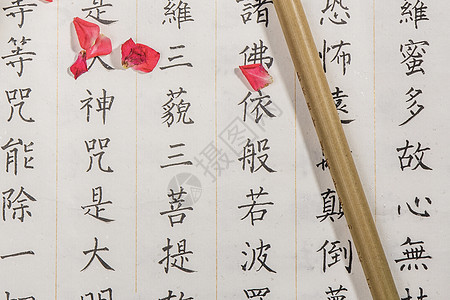 羅蜜多故心無
恐怖遠顛倒
諸佛依般若波羅
羅三藐三菩提故
是大神咒是大明
等等咒能除一切